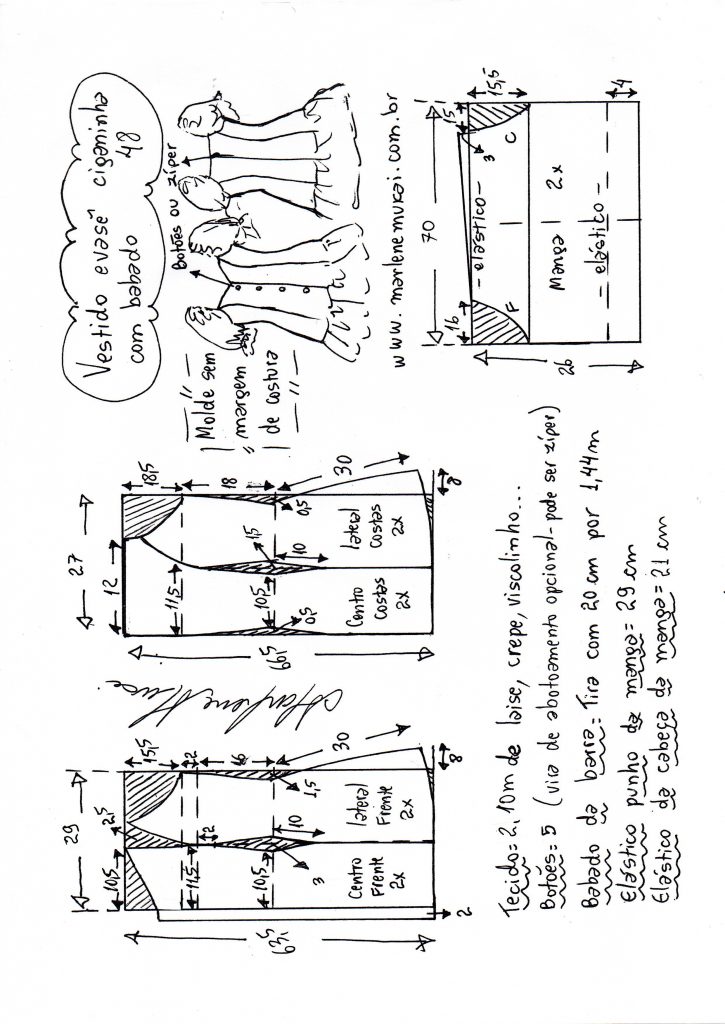 Vestido evasê ciganinha
com babado 48
Botões ou zíper
Molde sem
margem
de costura
www.marlenemukai.com.br
29
10,5
2,5
15,5
2
16
11,5
2
10,5
10
3
1,5
30
8
63,5
2
Centro
Frente
2x
lateral
Frente
2x
27
12
18,5
18
11,5
1,5
10,5
10
0,5
0,5
30
8
66,5
Centro
Costas
2x
lateral
Costas
2x
70
16
15
15,5
3
F
C
- elástico -
Manga 2x
- elástico -
4
26
Tecido= 2,10m de laise, crepe, viscolinho...
Botões= 5 (vira de abotoamento opcional - pode ser zíper)
Babado da barra= Tira com 20cm por 1,44m
Elástico punho da manga= 29cm
Elástico da cabeça da manga= 21cm